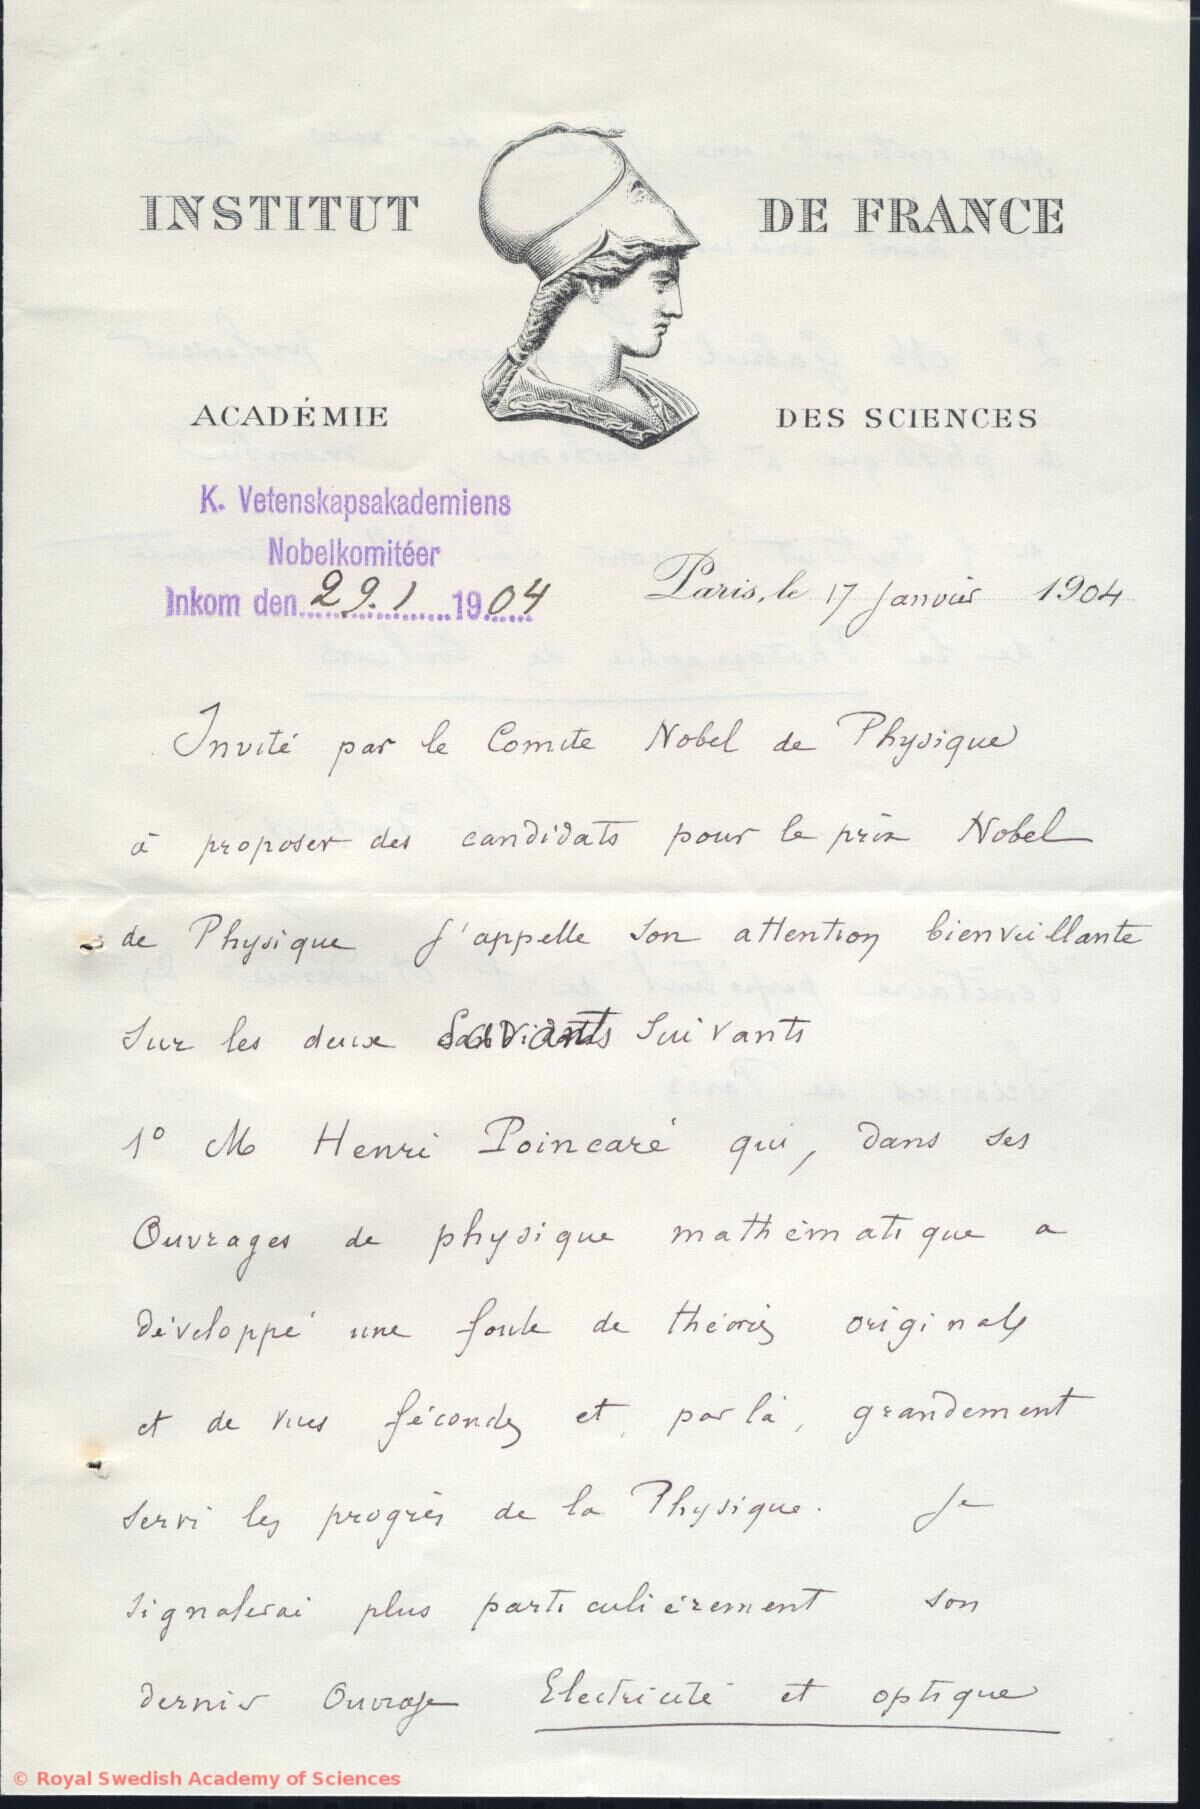 INSTITUT DE FRANCE
ACADÉMIE DES SCIENCES
K. Vetenskapsakademiens
Nobelkomitéer
Inkom den 29.1 1904
Paris, le 17 Janvier 1904
Invité par le Comite Nobel de Physique
à proposer des candidats pour le prix Nobel
de Physique j'appelle son attention bienveillante
sur les deux savants suivants
1° M Henri Poincaré qui, dans ses
Ouvrages de physique mathématique a
développé une foule de théories originales
et de vues fécondes et, par là, grandement
servi les progrès de la Physique. Je
signalerai plus particulièrement son
dernier Ouvrage Electricité et optique
© Royal Swedish Academy of Sciences